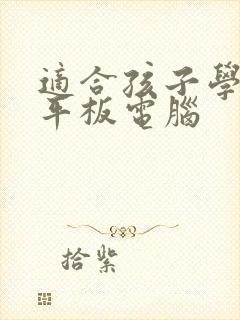 適合孩子學
平板電腦
拾紫